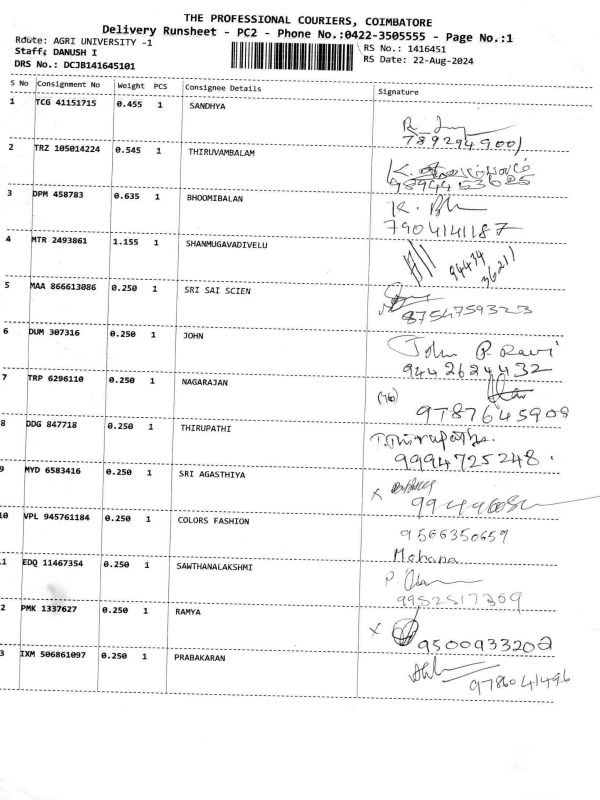 THE PROFESSIONAL COURIERS, COIMBATORE
Delivery Runsheet - PC2 - Phone No.:0422-3505555 - Page No.:1
Route: AGRI UNIVERSITY -1 RS No.: 1416451
Staff: DANUSH I RS Date: 22-Aug-2024
DRS No.: DCJB141645101
S No Consignment No Weight PCS Consignee Details Signature
1 TCG 41151715 0.455 1 SANDHYA
7892949001
2 TRZ 105014224 0.545 1 THIRUVAMBALAM
9894453625
3 DPM 458783 0.635 1 BHOOMIBALAN
K.
7904141187
4 MTR 2493861 1.155 1 SHANMUGAVADIVELU
94434
36211
5 MAA 866613086 0.250 1 SRI SAI SCIEN
8754759323
6 DUM 307316 0.250 1 JOHN
John P Ravi
9442624432
7 TRP 6296110 0.250 1 NAGARAJAN
(76)
9787645909
8 DDG 847718 0.250 1 THIRUPATHI
9994725248.
9 MYD 6583416 0.250 1 SRI AGASTHIYA
X
10 VPL 945761184 0.250 1 COLORS FASHION
9566350659
Mohana
1 EDQ 11467354 0.250 1 SAWTHANALAKSHMI
P
9952517369
2 PMK 1337627 0.250 1 RAMYA
X
9500933202
3 IXM 506861097 0.250 1 PRABAKARAN
9786041496